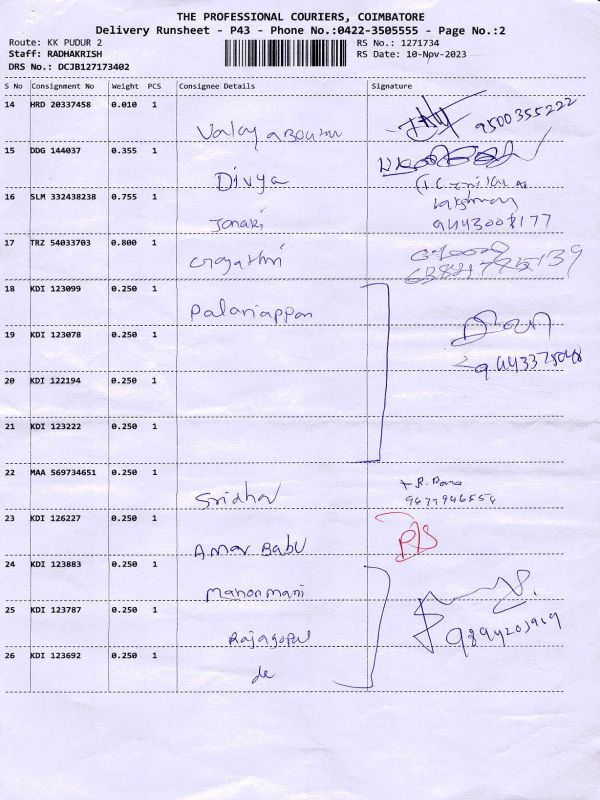 THE PROFESSIONAL COURIERS, COIMBATORE
Delivery Runsheet - P43 - Phone No.:0422-3505555 - Page No.:2
Route: KK PUDUR 2
RS No.: 1271734
Staff: RADHAKRISH
RS Date: 10-Nov-2023
DRS No.: DCJB127173402
S No Consignment No Weight PCS Consignee Details Signature
14 HRD 20337458 0.010 1
9500355222
15 DDG 144037 0.355 1
Divya
16 SLM 332438238 0.755 1
Janaki
9443008177
17 TRZ 54033703 0.800 1
Gayathri
18 KDI 123099 0.250 1
Palaniappan
19 KDI 123078 0.250 1
20 KDI 122194 0.250 1
21 KDI 123222 0.250 1
22 MAA 569734651 0.250 1
Sridhar
23 KDI 126227 0.250 1
Amar Babu
24 KDI 123883 0.250 1
Manonmani
25 KDI 123787 0.250 1
Rajagopal
26 KDI 123692 0.250 1
do